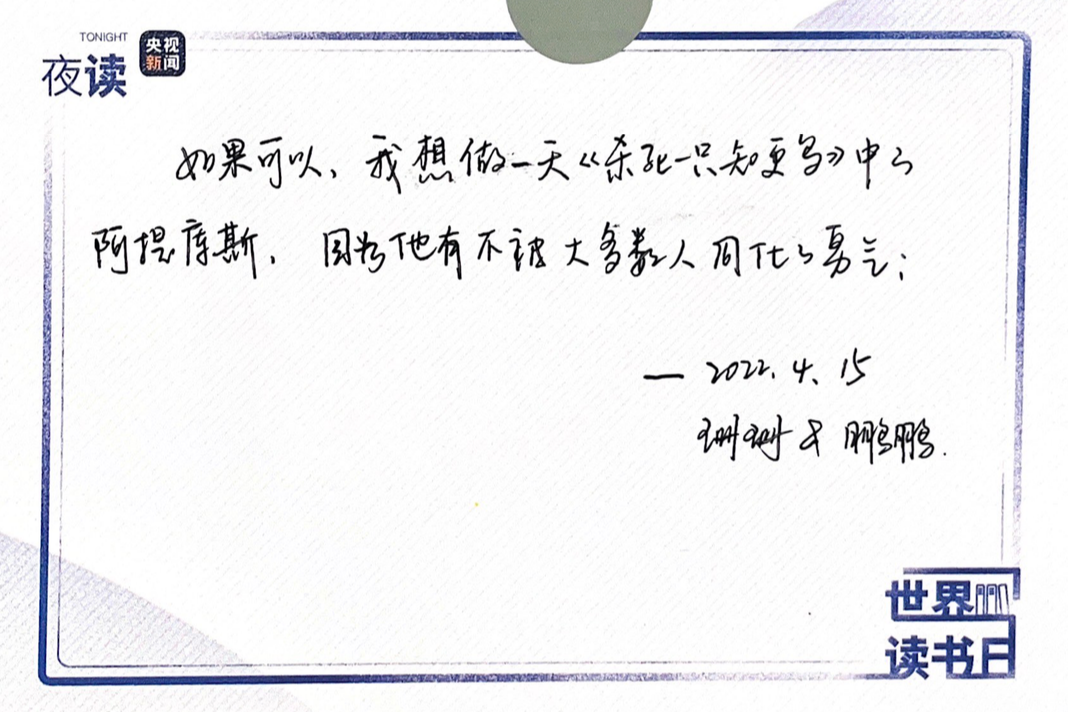 TONIGHT
夜读
央视
新闻
如果可以、我想做一天《杀死一只知更鸟》中的
阿提库斯，因为他有不被大多数人同化的勇气；
— 2022.4.15
珊珊 & 鹏鹏.
世界
读书日